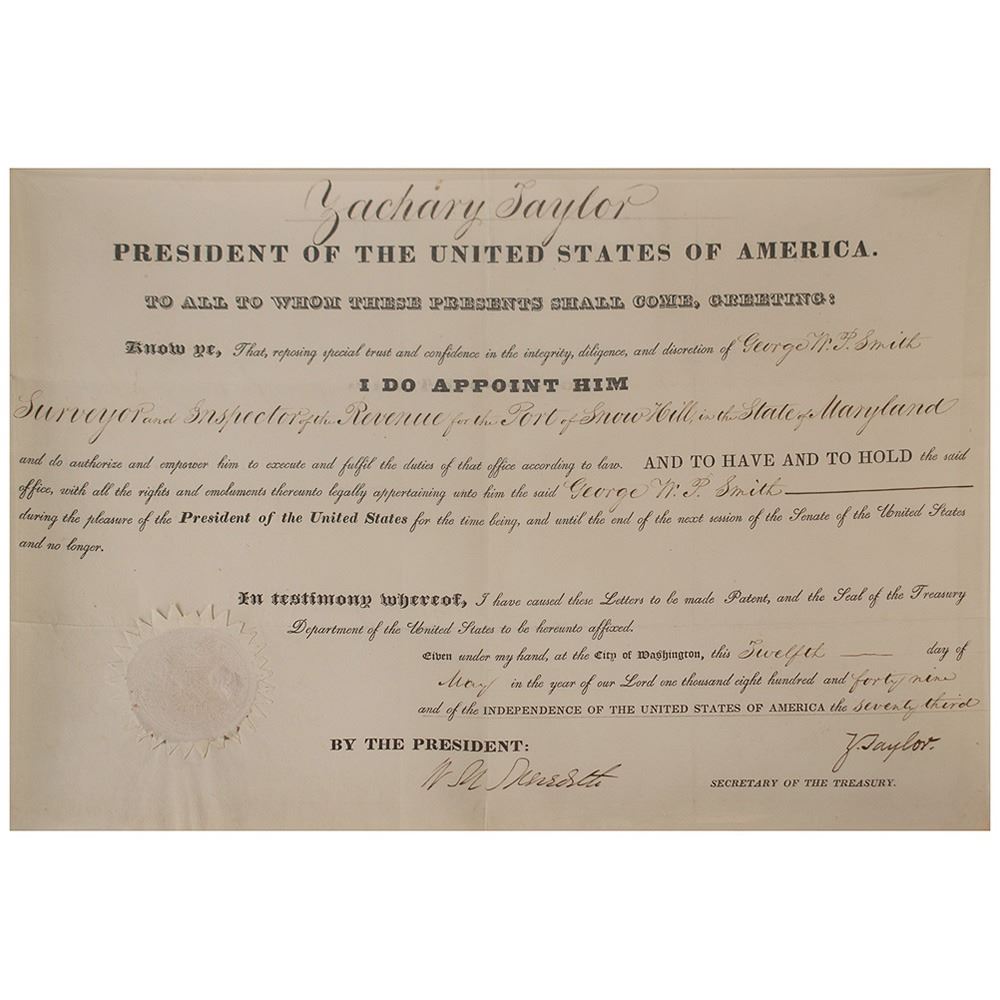 Zachary Taylor
PRESIDENT OF THE UNITED STATES OF AMERICA.
TO ALL TO WHOM THESE PRESENTS SHALL COME, GREETING:
Know ye, That, reposing special trust and confidence in the integrity, diligence, and discretion of George W. P. Smith
I DO APPOINT HIM
Surveyor and Inspector of the Revenue for the Port of Snow Hill, in the State of Maryland
and do authorize and empower him to execute and fulfil the duties of that office according to law. AND TO HAVE AND TO HOLD the said
office, with all the rights and emoluments thereunto legally appertaining unto him the said George W. P. Smith
during the pleasure of the President of the United States for the time being, and until the end of the next session of the Senate of the United States
and no longer.
In testimony whereof, I have caused these Letters to be made Patent, and the Seal of the Treasury
Department of the United States to be hereunto affixed.
Given under my hand, at the City of Washington, this Twelfth day of
May in the year of our Lord one thousand eight hundred and forty nine
and of the INDEPENDENCE OF THE UNITED STATES OF AMERICA the seventy third
BY THE PRESIDENT:
Z. Taylor.
W M Meredith
SECRETARY OF THE TREASURY.